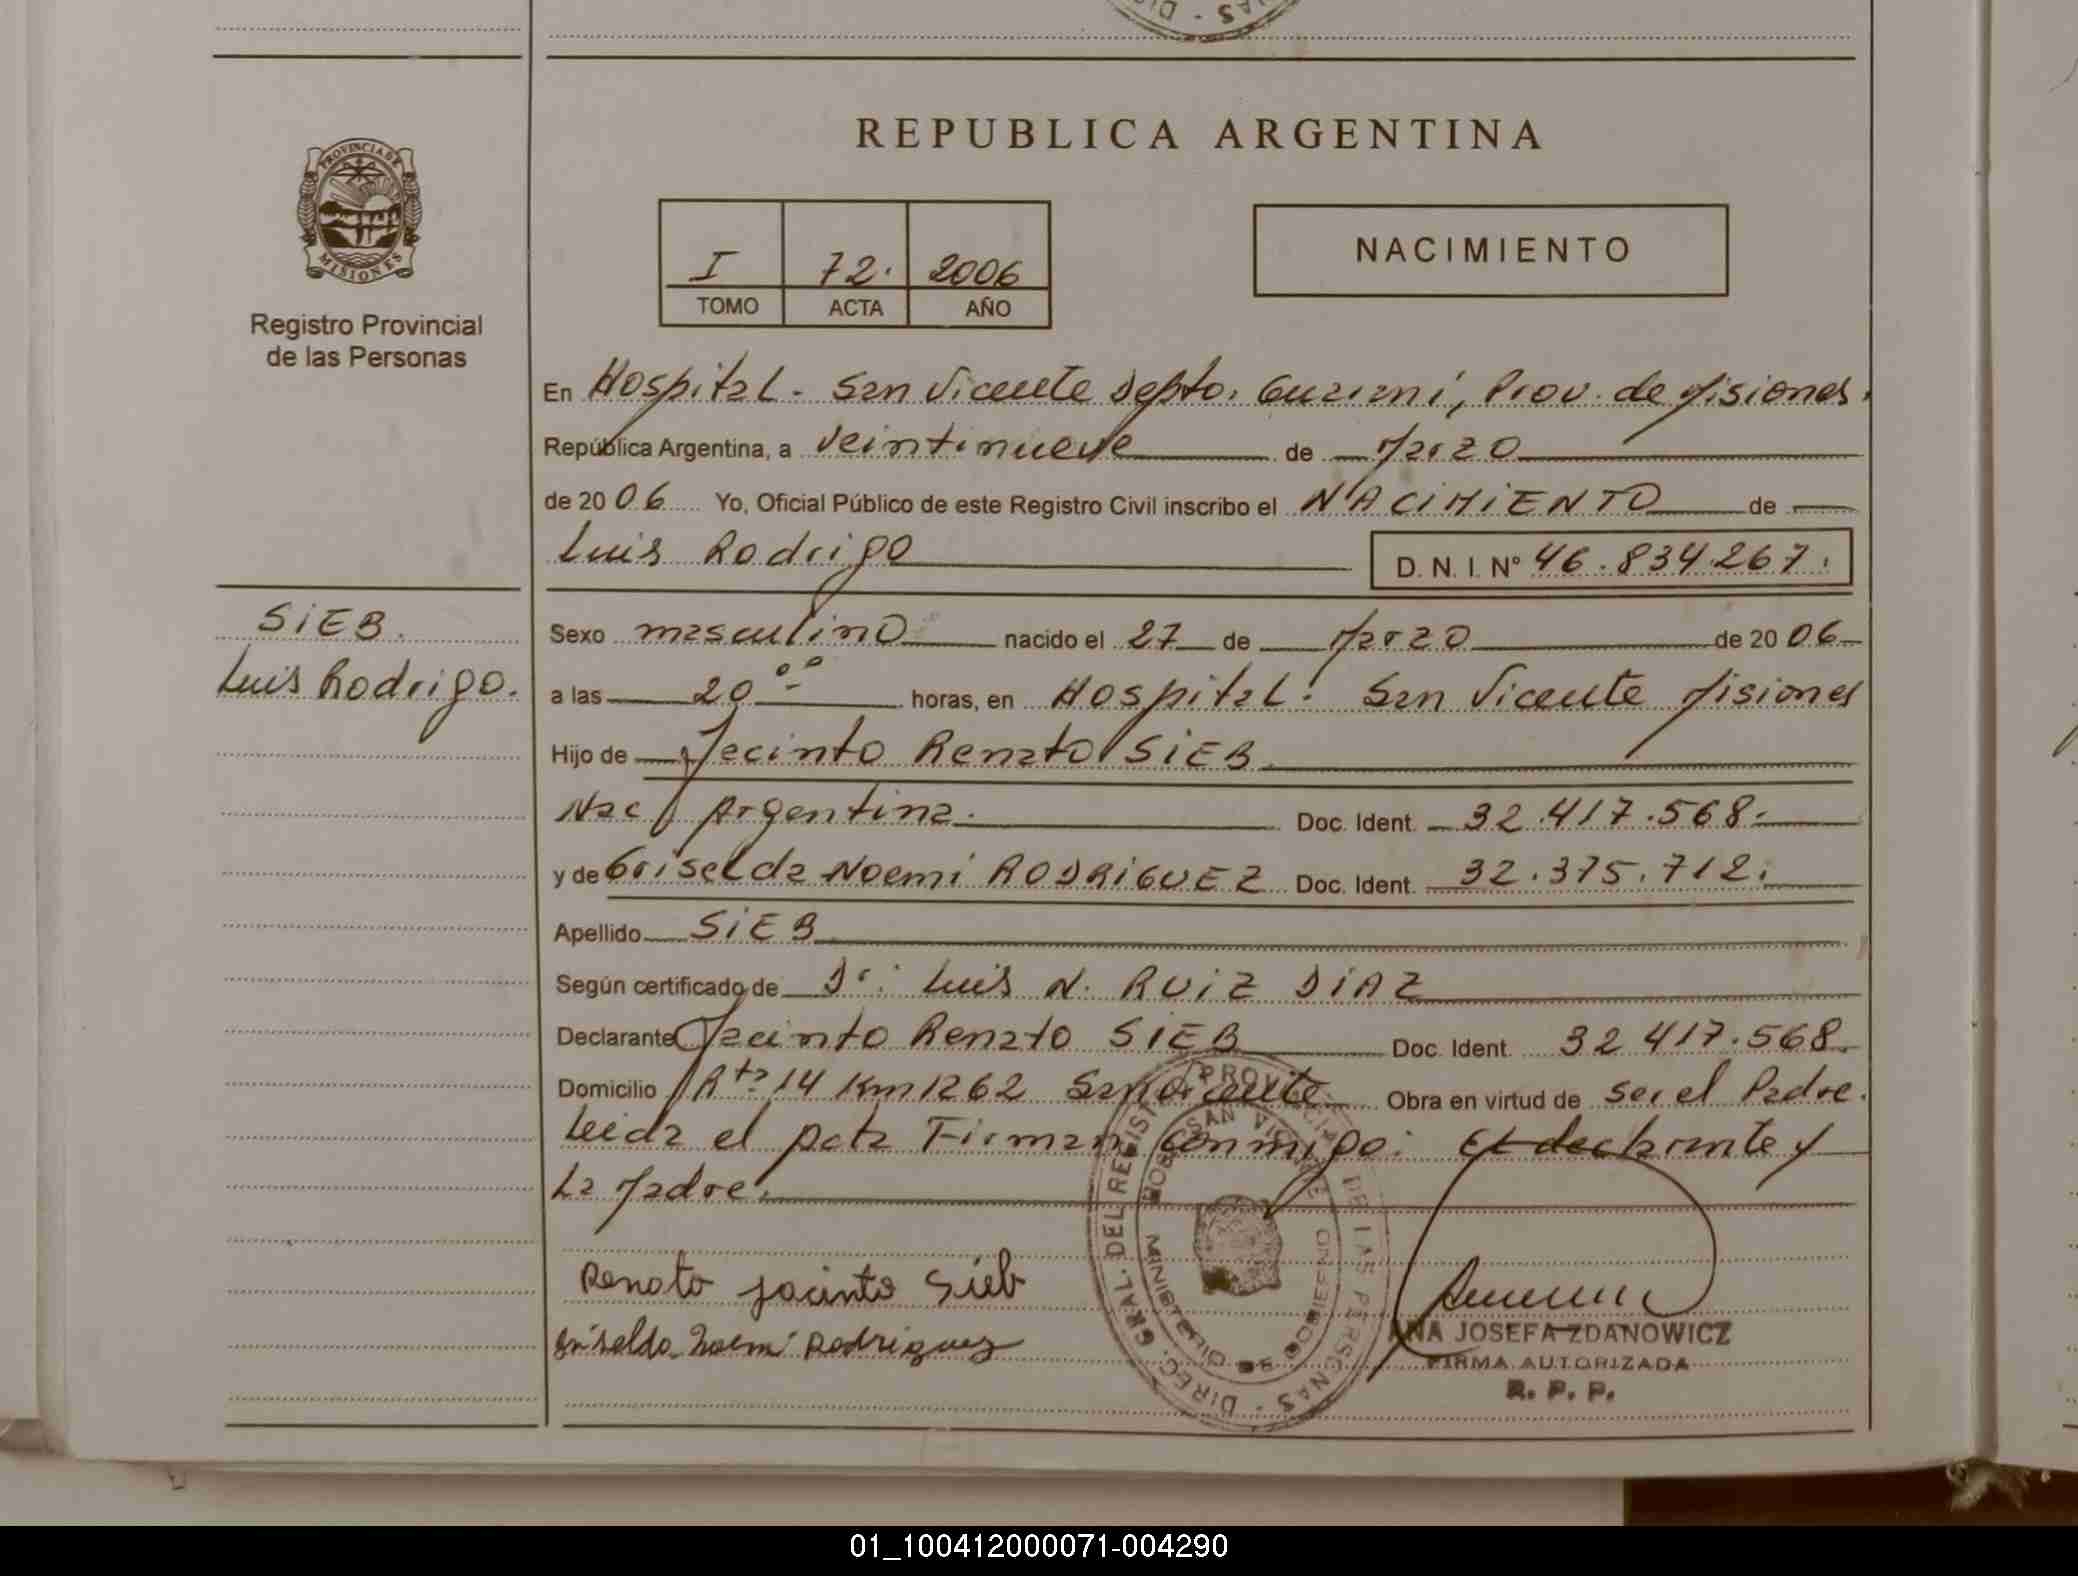 REPUBLICA ARGENTINA
PROVINCIA DE
MISIONES
Registro Provincial
de las Personas
I 72. 2006
TOMO ACTA AÑO
NACIMIENTO
En Hospital - San Vicente Depto. Guarani, Prov. de Misiones.
República Argentina, a veintinueve de Marzo
de 2006 Yo, Oficial Público de este Registro Civil inscribo el NACIMIENTO de
Luis Rodrigo D. N. I. Nº 46.834.267.
SIEB.
Luis Rodrigo.
Sexo masculino nacido el 27 de Marzo de 2006
a las 20 oo horas, en Hospital. San Vicente Misiones
Hijo de Jacinto Renato SIEB
Nac Argentina. Doc. Ident. 32.417.568.
y de Griselda Noemi RODRIGUEZ Doc. Ident. 32.375.712.
Apellido SIEB
Según certificado de Dr: Luis N. RUIZ DIAZ
Declarante Jacinto Renato SIEB Doc. Ident. 32 417.568.
Domicilio Rta 14 Km 1262 San Vicente Obra en virtud de ser el Padre.
Leida el Acta Firman conmigo: El declarante y
La Madre.
Renato Jacinto Sieb
Griselda Noemi Rodriguez
DIREC. GRAL. DEL REGIST. PROVINCIAL DE LAS PERSONAS
SAN VICENTE
MINISTERIO DE GOBIERNO
ANA JOSEFA ZDANOWICZ
FIRMA AUTORIZADA
R. P. P.
01_100412000071-004290